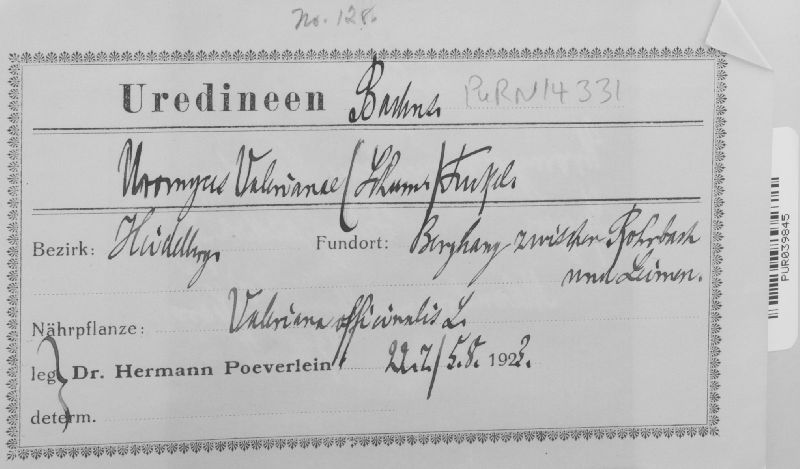 No. 128.
Uredineen Badens. PuRN14331
Uromyces Valerianae (Schum.) Fuckel.
Bezirk: Heidelberg. Fundort: Berghang zwischen Rohrbach
und Leimen.
Nährpflanze: Valeriana officinalis L.
leg. Dr. Hermann Poeverlein, 22.7./5.8. 1923.
determ.
PUR039845